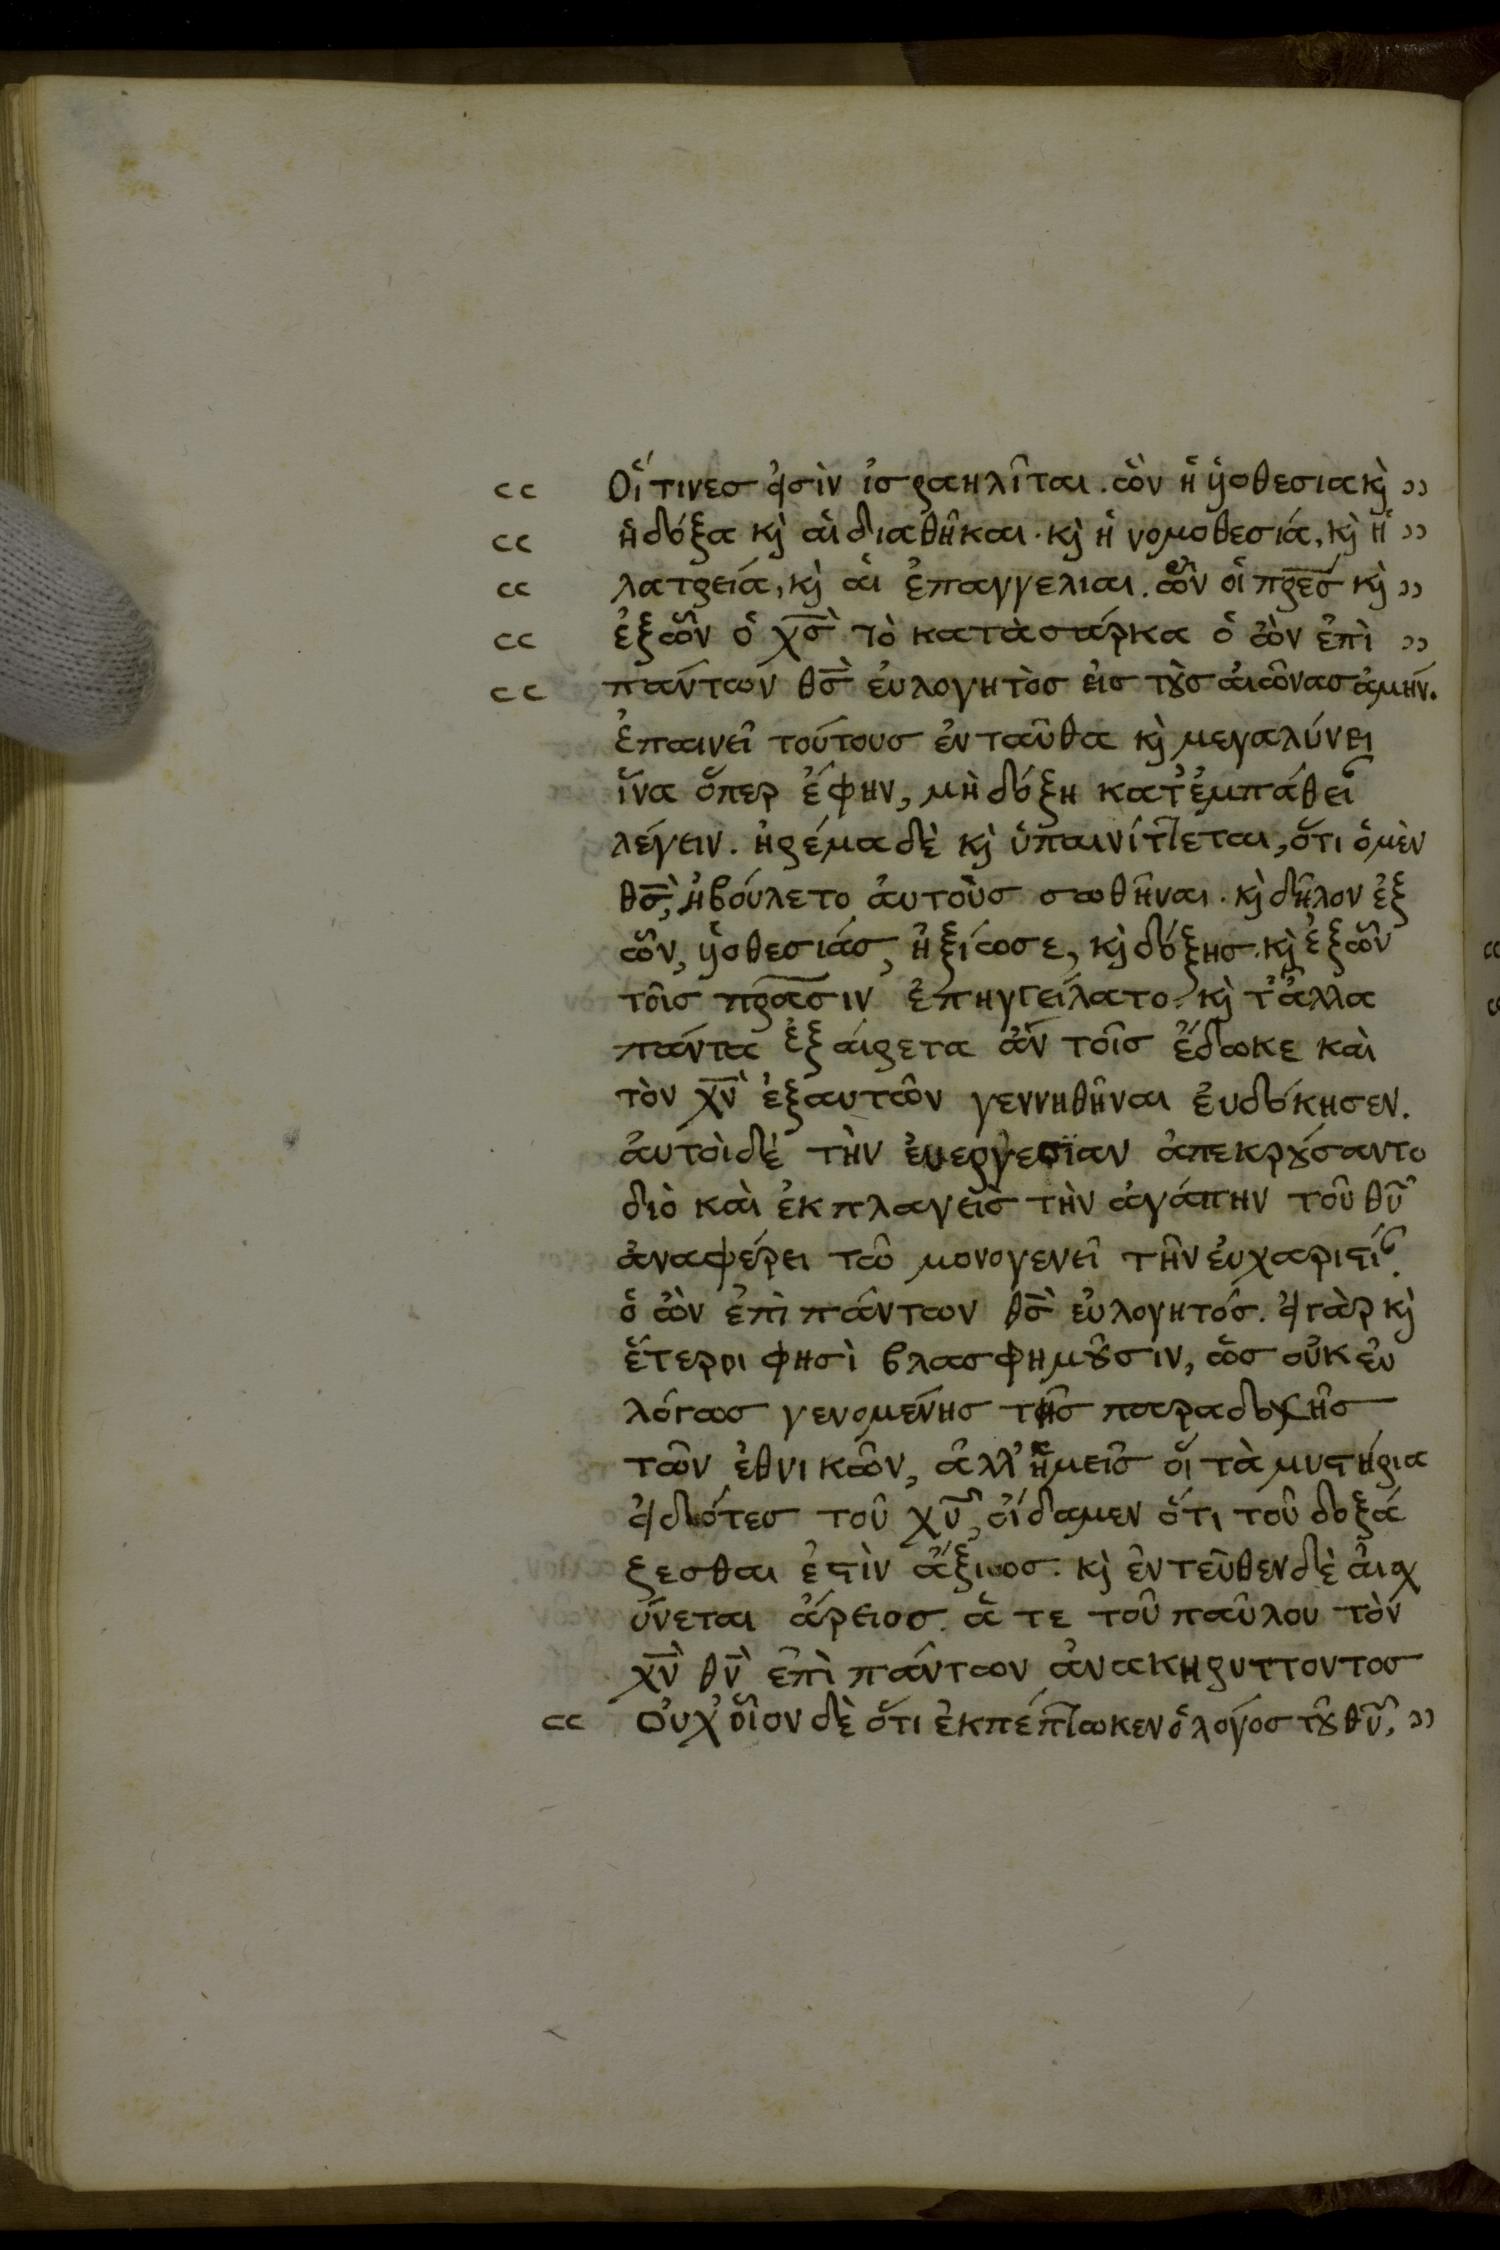 cc Οἵτινεσ εἰσὶν ἰσραηλῖται. ὧν ἡ ὑοθεσια κὶ ͻͻ
cc ἡ δόξα κὶ αἱ διαθῆκαι· κὶ ἡ νομοθεσιά, κὶ ἡ ͻͻ
cc λατρειά, κὶ αἱ ἐπαγγελιαι. ὧν οἱ πρεσ κὶ ͻͻ
cc ἐξ ὧν ὁ χσ̀ τὸ κατὰ σάρκα ὁ ὢν ἐπὶ ͻͻ
cc πάντων θσ̀ ἐυλογητὸσ ἐισ τοὺσ ἀιῶνασ ἀμήν.
ἐπαινεῖ τούτουσ ἐνταῦθα κὶ μεγαλύνει
ἵνα ὅπερ ἔφην, μὴ δόξη κατ᾽ ἐμπάθει
λέγειν. ἠρέμα δὲ κὶ ὑπαινίττεται, ὅτι ὁ μὲν
θσ̀, ἠβούλετο ἀυτοὺσ σωθῆναι. κὶ δῆλον ἐξ
ὧν, ὑοθεσιάσ, ἠξίωσε, κὶ δόξησ. κὶ ἐξ ὧν
τοῖσ πρασιν ἐπηγγείλατο. κὶ τ᾽ ἄλλα
πάντα ἐξάιρετα ἀν τοῖσ ἔδωκε καὶ
τὸν χν̀ ἐξ αυτῶν γεννηθῆναι ἐυδόκησεν.
ἀυτὸι δὲ τὴν ἐυεργεσίαν ἀπεκρούσαντο
διὸ καὶ ἐκπλαγεὶσ τὴν ἀγάπην τοῦ θῦ
ἀναφέρει τῶ μονογενεῖ τὴν ἐυχαριστί.
ὁ ὢν ἐπὶ πάντων θσ̀ ἐυλογητόσ. εἰ γὰρ κὶ
ἕτεροι φησὶ βλασφημοῦσιν, ὡσ οὐκ ἐυ
λόγωσ γενομένησ τῆσ παραδοχῆσ
τῶν ἐθνικῶν, ἀλλ᾽ ἡμεῖσ οἱ τὰ μυστήρια
εἰδότεσ τοῦ χῦ, οἴδαμεν ὅτι τοῦ δοξά
ξεσθαι ἐστὶν ἄξιοσ. κὶ ἐντεῦθεν δὲ ἀισχ
ύνεται ἄρειοσ. ἅ τε τοῦ παύλου τὸν
χν̀ θν̀ ἐπὶ πάντων ἀνακηρυττοντοσ
cc Οὐχ᾽ οἷον δὲ ὅτι ἐκπέπτωκεν ὁ λογόσ τοῦ θῦ, ͻͻ